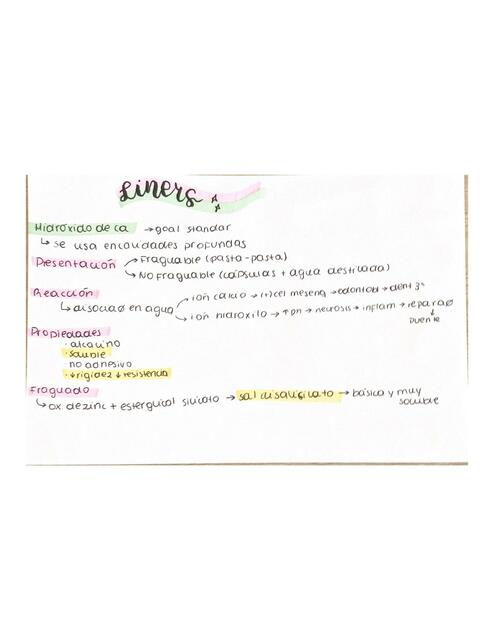 Liners
Hidróxido de ca → goal standar
↳ se usa en cavidades profundas
Presentación → Fraguable (pasta-pasta)
→ No Fraguable (cápsulas + agua destilada)
Reacción → ión calcio → (+) cel mesenq → odontobl → dent 3ª
↳ disociaø en agua
→ ión hidróxilo → ↑ pH → necrosis → inflam → reparaø
↓
puente
Propiedades
· alcalino
· soluble
no adhesivo
· ↓ rigidez ↓ resistencia
Fraguado
↳ ox. de zinc + esterglicol silicato → sal disalicilato → básica y muy
soluble